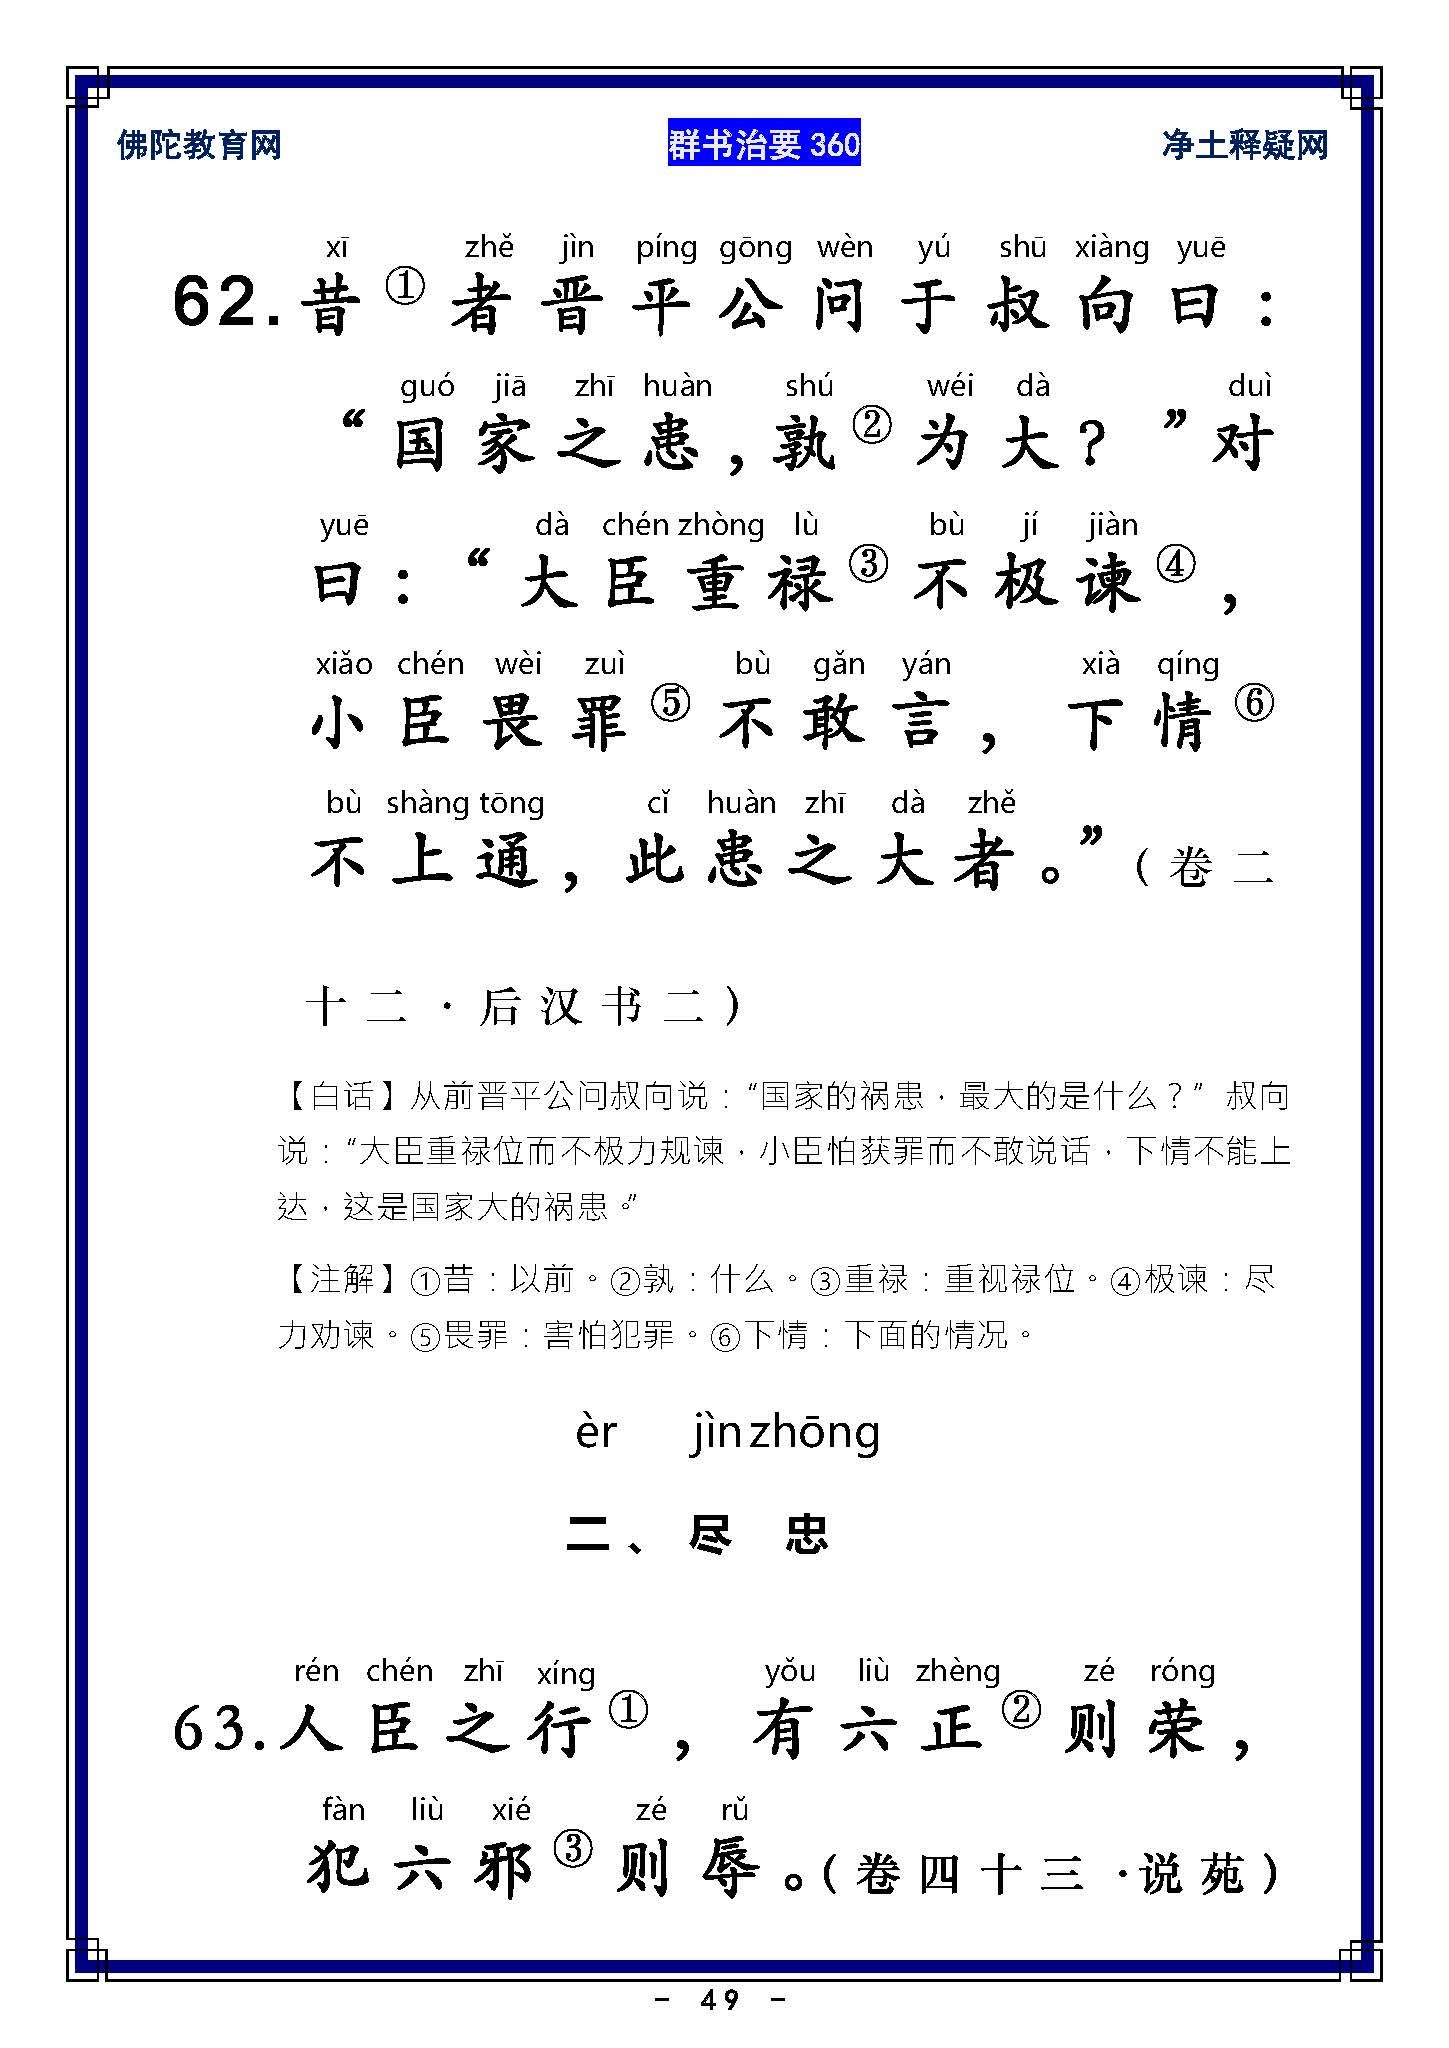 佛陀教育网 群书治要 360 净土释疑网
xī zhě jìn píng gōng wèn yú shū xiàng yuē
62.昔①者晋平公问于叔向曰：
guó jiā zhī huàn shú wéi dà duì
“国家之患，孰②为大？”对
yuē dà chén zhòng lù bù jí jiàn
曰：“大臣重禄③不极谏④，
xiǎo chén wèi zuì bù gǎn yán xià qíng
小臣畏罪⑤不敢言，下情⑥
bù shàng tōng cǐ huàn zhī dà zhě
不上通，此患之大者。”（卷二
十二·后汉书二）
【白话】从前晋平公问叔向说：“国家的祸患，最大的是什么？”叔向
说：“大臣重禄位而不极力规谏，小臣怕获罪而不敢说话，下情不能上
达，这是国家大的祸患。”
【注解】①昔：以前。②孰：什么。③重禄：重视禄位。④极谏：尽
力劝谏。⑤畏罪：害怕犯罪。⑥下情：下面的情况。
èr jìn zhōng
二、尽 忠
rén chén zhī xíng yǒu liù zhèng zé róng
63.人臣之行①，有六正②则荣，
fàn liù xié zé rǔ
犯六邪③则辱。（卷四十三·说苑）
- 49 -